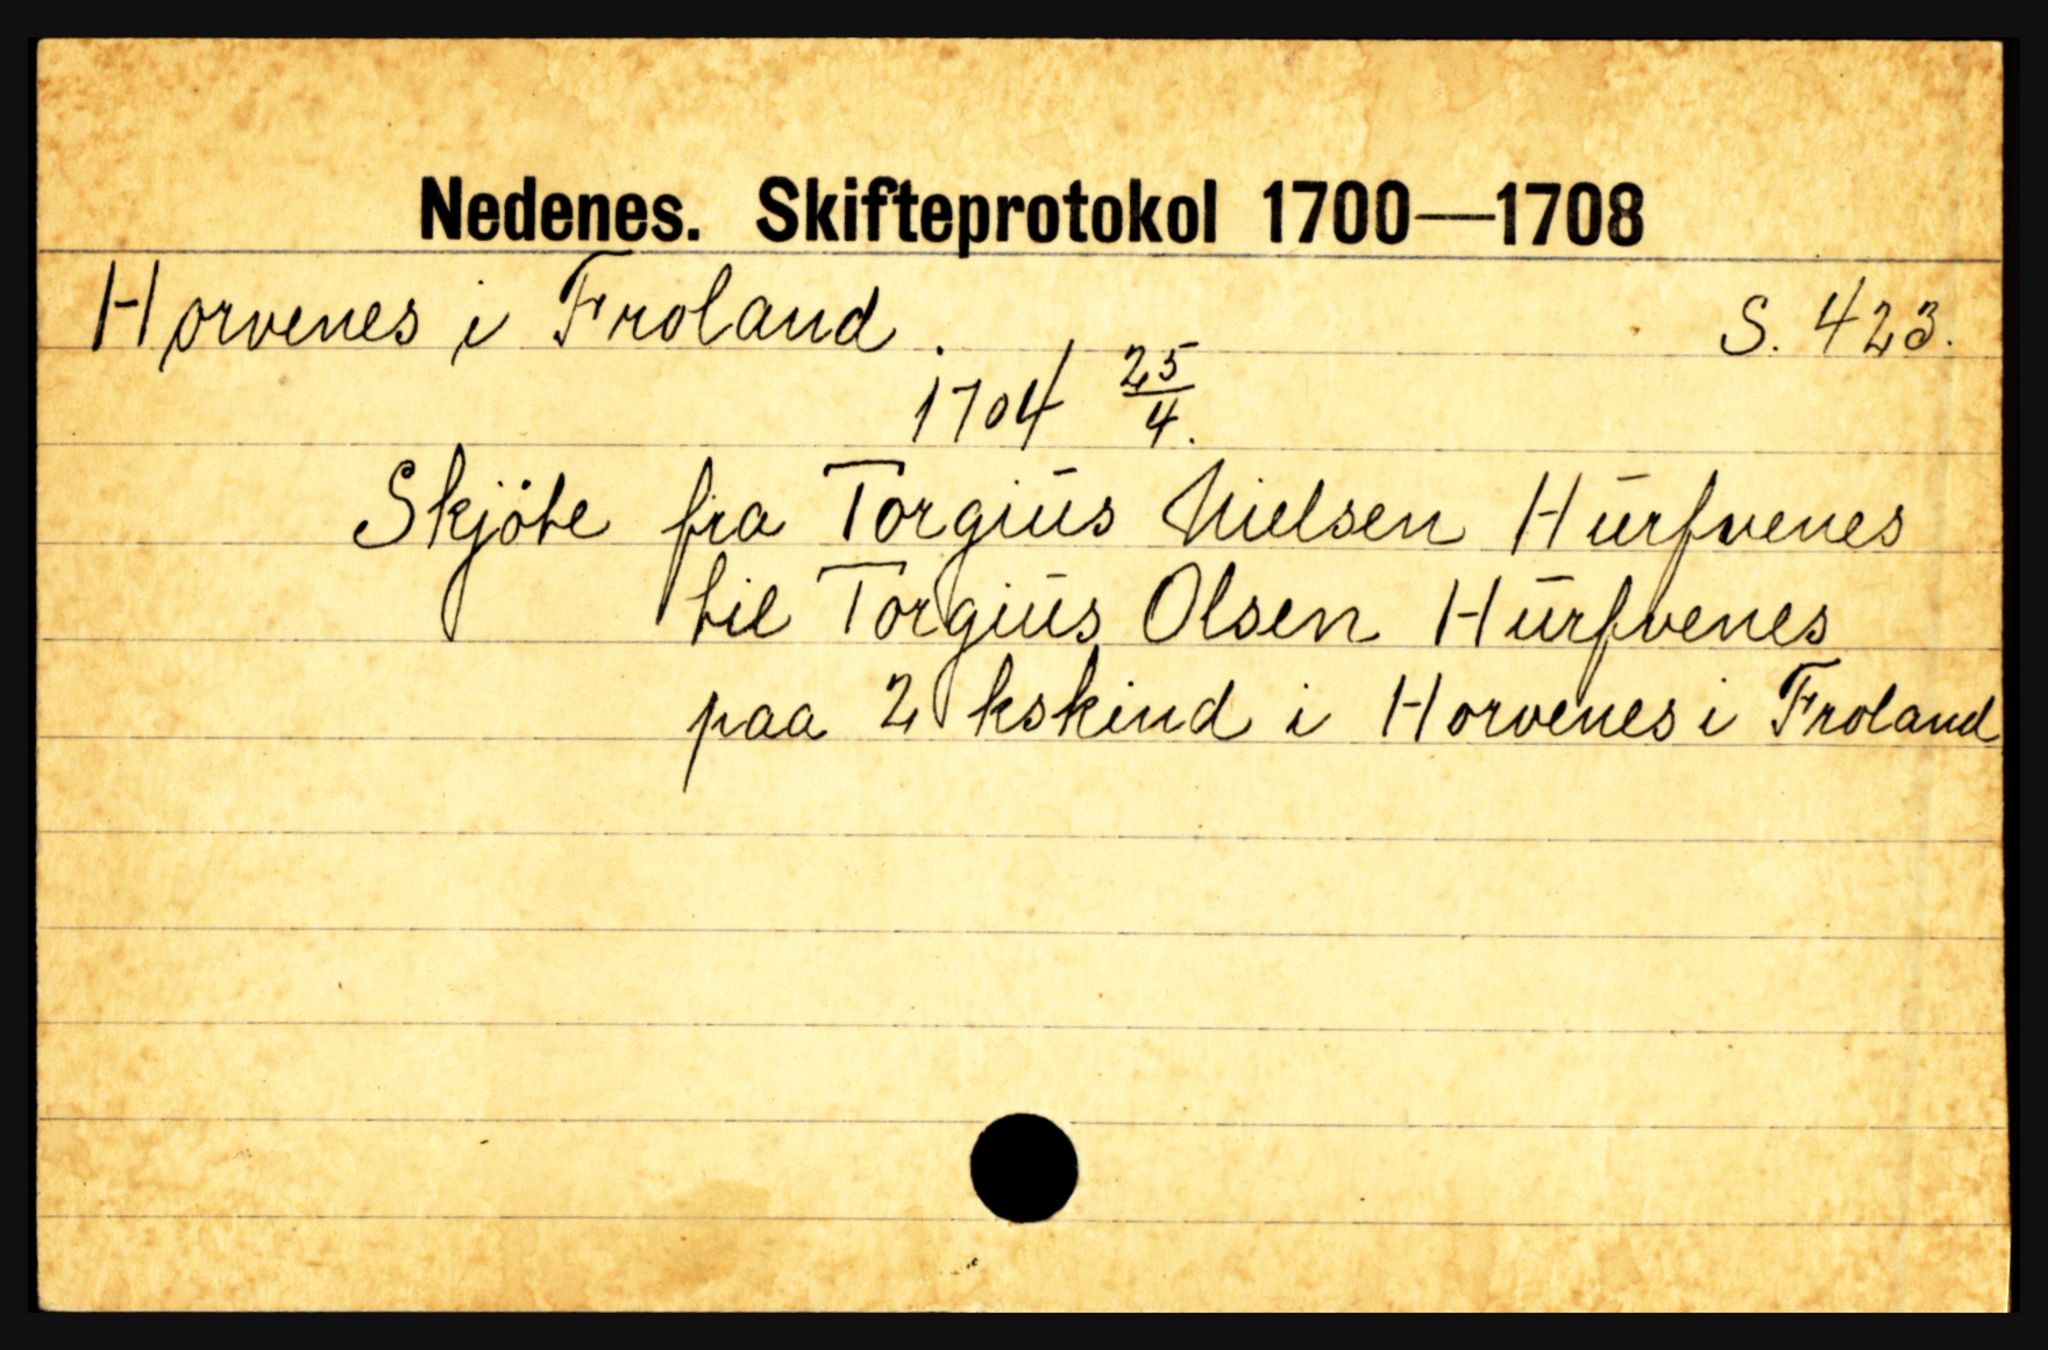 Nedenes. Skifteprotokol 1700—1708
Horvenes i Froland. S. 423.
1704 25/4.
Skjöte fra Torgiūs Nielsen Hūrfvenes
til Torgiūs Olsen Hūrfvenes
paa 2 kskind i Horvenes i Froland